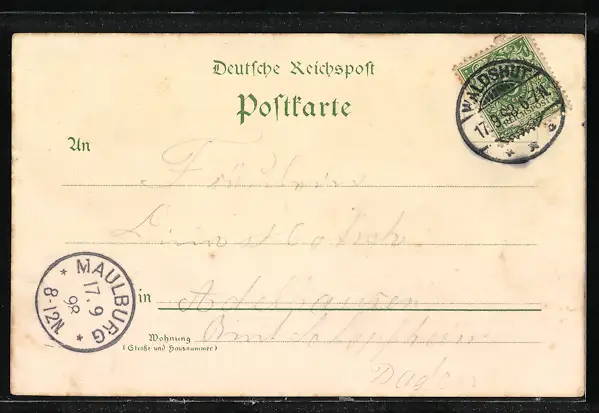 Deutsche Reichspost
Postkarte
WALDSHUT
17.9.98.6-7N.
An
Fräulein
MAULBURG
17.9
98
8-12N.
in Adelhausen
Wohnung
(Straße und Hausnummer)
Amt Schopfheim
Baden